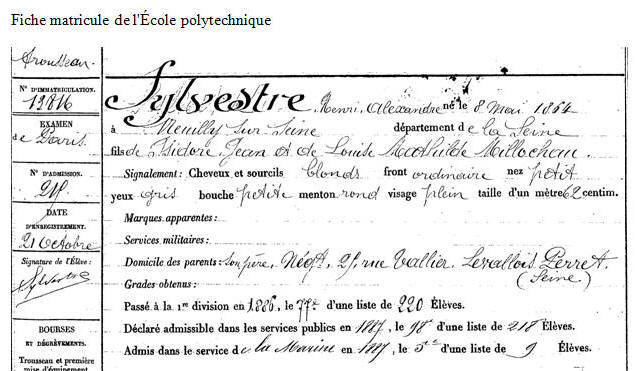 Fiche matricule de l'École polytechnique
Trousseau.
N° D'IMMATRICULATION.
12816
EXAMEN
de Paris
N° D'ADMISSION.
DATE
D'ENREGISTREMENT.
21 Octobre
Signature de l'Élève:
Sylvestre
BOURSES
ET DÉGRÈVEMENTS.
Trousseau et première
mise d'équipement
Sylvestre Henri, Alexandre né le 8 Mai 1864
à Neuilly sur Seine département de la Seine
fils de Isidore, Jean et de Louise Mathilde Millochau.
Signalement: Cheveux et sourcils blonds front ordinaire nez petit
yeux gris bouche petite menton rond visage plein taille d'un mètre 62 centim.
Marques apparentes:
Services militaires:
Domicile des parents: son père, Négt, 25, rue Vallier, Levallois Perret
(Seine)
Grades obtenus:
Passé à la 1re division en 1886, le 77e d'une liste de 220 Élèves.
Déclaré admissible dans les services publics en 1887, le 98e d'une liste de 218 Élèves.
Admis dans le service de la Marine en 1887, le 5e d'une liste de 9 Élèves.